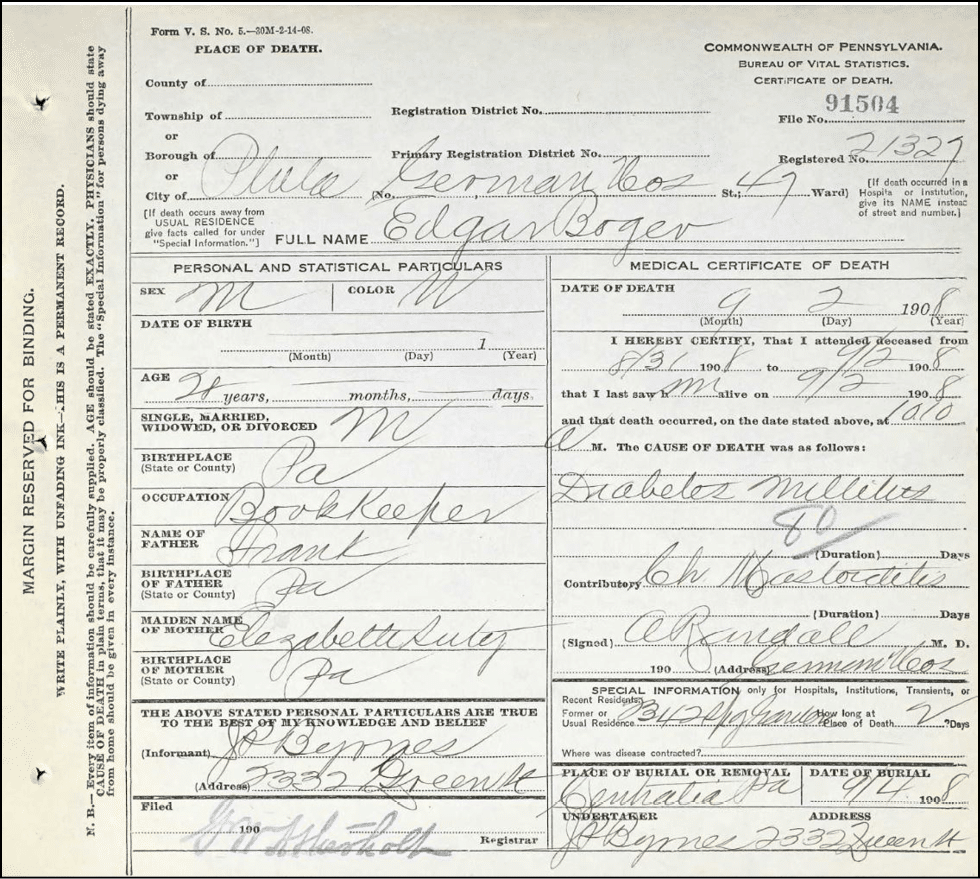 Form V. S. No. 5.—30M-2-14-08.
PLACE OF DEATH.
COMMONWEALTH OF PENNSYLVANIA.
BUREAU OF VITAL STATISTICS.
CERTIFICATE OF DEATH.
County of
Township of
Registration District No.
File No. 91504
or
Borough of
Primary Registration District No.
Registered No. 21327
or
City of Phila (No. German Hos St.; 47 Ward)
[If death occurred in a Hospital or Institution, give its NAME instead of street and number.]
[If death occurs away from USUAL RESIDENCE give facts called for under "Special Information."]
FULL NAME Edgar Boger
PERSONAL AND STATISTICAL PARTICULARS
SEX M
COLOR W
DATE OF BIRTH
1
(Month) (Day) (Year)
AGE 28 years, months, days.
SINGLE, MARRIED,
WIDOWED, OR DIVORCED M
BIRTHPLACE
(State or County) Pa
OCCUPATION Bookkeeper
NAME OF
FATHER Frank
BIRTHPLACE
OF FATHER
(State or County) Pa
MAIDEN NAME
OF MOTHER Elizabeth
BIRTHPLACE
OF MOTHER
(State or County) Pa
THE ABOVE STATED PERSONAL PARTICULARS ARE TRUE
TO THE BEST OF MY KNOWLEDGE AND BELIEF
(Informant) JP Byrnes
(Address) 2332 Green St
Filed
190
Registrar
MEDICAL CERTIFICATE OF DEATH
DATE OF DEATH
9 2 1908
(Month) (Day) (Year)
I HEREBY CERTIFY, That I attended deceased from
8/31 1908 to 9/2 1908
that I last saw h m alive on 9/2 1908
and that death occurred, on the date stated above, at 1010
a M. The CAUSE OF DEATH was as follows:
Diabetes Millitus
80
(Duration) Days
Contributory Ch Mastoiditis
(Duration) Days
(Signed) A Randall M. D.
190 (Address) German Hos
SPECIAL INFORMATION only for Hospitals, Institutions, Transients, or
Recent Residents.
Former or
Usual Residence 2342 Spg Garden
How long at
Place of Death 2 ? Days
Where was disease contracted?
PLACE OF BURIAL OR REMOVAL
Centralia Pa
DATE OF BURIAL
9/4 1908
UNDERTAKER
JP Byrnes
ADDRESS
2332 Green St
MARGIN RESERVED FOR BINDING.
WRITE PLAINLY, WITH UNFADING INK—THIS IS A PERMANENT RECORD.
N. B.—Every item of information should be carefully supplied. AGE should be stated EXACTLY. PHYSICIANS should state
CAUSE OF DEATH in plain terms, that it may be properly classified. The "Special Information" for persons dying away
from home should be given in every instance.